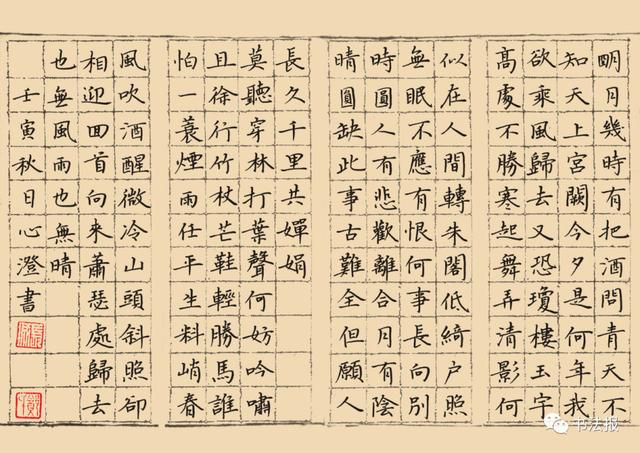 明月幾時有把酒問青天不
知天上宮闕今夕是何年我
欲乘風歸去又恐瓊樓玉宇
高處不勝寒起舞弄清影何
似在人間轉朱閣低綺戶照
無眠不應有恨何事長向別
時圓人有悲歡離合月有陰
晴圓缺此事古難全但願人
長久千里共嬋娟
莫聽穿林打葉聲何妨吟嘯
且徐行竹杖芒鞋輕勝馬誰
怕一蓑煙雨任平生料峭春
風吹酒醒微冷山頭斜照卻
相迎回首向來蕭瑟處歸去
也無風雨也無晴
壬寅秋日心澄書
书法报